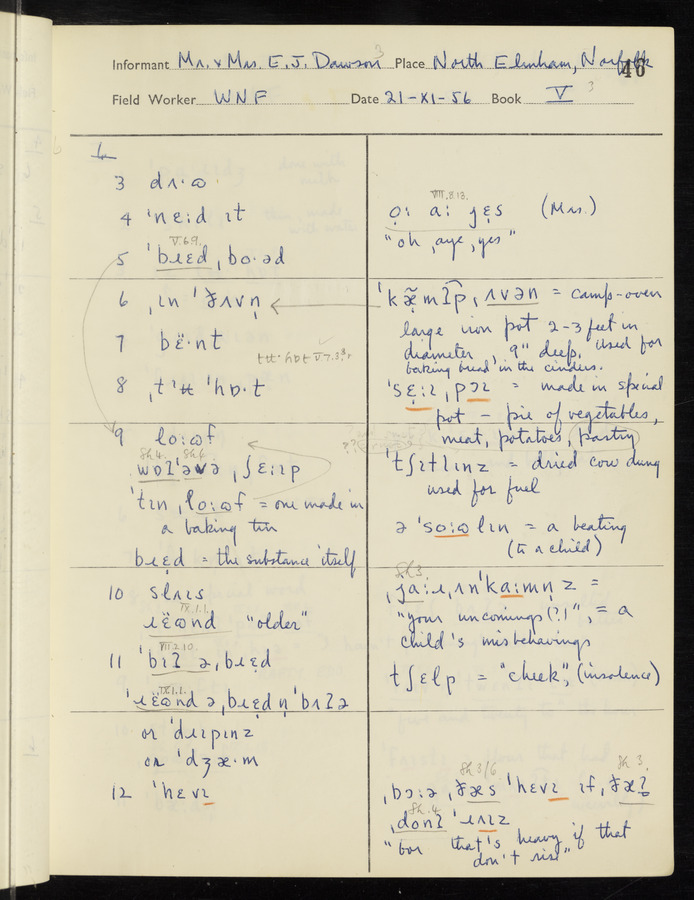 Informant Mr. & Mrs. E. J. Dawson 3 Place North Elmham, Norfolk
46
Field Worker WNF Date 21-XI-56 Book V 3
6
3 dʌ·ɷ
4 'nɛ:d ɪt
V.6.9.
5 'bɹɛd, bo·əd
6 ,ɪn 'ðʌvn̩
7 bë·nt
8 ,t 'ʉ 'hɒ·t
9 lo:ɷf
Sh 4. Sh 6.
'tɪn ,lo:ɷf = one made in
a baking tin
bɹɛd = the substance itself
10 slaɪs
IX.1.1.
ɹɛ̈ɷnd "older"
VII.2.10.
11 'bɪʔ ə ,bɹɛd
IX.1.1.
'ɹɛ̈ɷnd ə ,bɹɛd n̩ 'bʌʔə
or 'dɹɪpɪnz
or 'dʒæ·m
12 'hɛvɪ
VIII.8.13.
o: a: jɛs (Mrs.)
"oh, aye, yes"
'kæ̃mʔp ,ʌvən = camp-oven
large iron pot 2-3 feet in
diameter, 9" deep. Used for
baking bread in the cinders.
'sɛ:ɪ ,pɔɪ = made in special
pot – pie of vegetables,
meat, potatoes, pastry
'tʃɪtlɪnz = dried cow dung
used for fuel
ə 'so:ɷlɪn = a beating
(to a child)
,ja:ɹ ,ʌn'ka:mn̩z =
"your uncomings (?!)", = a
child's misbehavings
tʃɛlp = "cheek", (insolence)
Sh 3/6 Sh 3.
,bɔ:ə ,ðæs 'hɛvɪ ɪf ,ðæʔ
Sh. 4.
,donʔ 'ɹʌɪz
"bor that's heavy if that
don't rise"